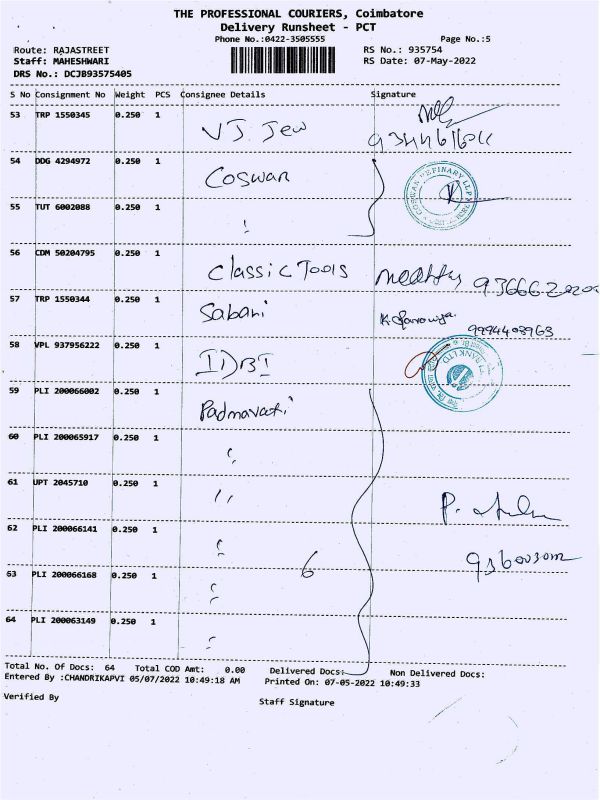 THE PROFESSIONAL COURIERS, Coimbatore
Delivery Runsheet - PCT
Phone No.:0422-3505555 Page No.:5
Route: RAJASTREET RS No.: 935754
Staff: MAHESHWARI RS Date: 07-May-2022
DRS No.: DCJB93575405
S No Consignment No Weight PCS Consignee Details Signature
53 TRP 1550345 0.250 1 VJ. Jew
54 DDG 4294972 0.250 1 Coswan
55 TUT 6002088 0.250 1
56 CDM 50204795 0.250 1 Classic Tools
57 TRP 1550344 0.250 1 Sabari 9994408963
58 VPL 937956222 0.250 1 IDBI
59 PLI 200066002 0.250 1 Padmavati
60 PLI 200065917 0.250 1 "
61 UPT 2045710 0.250 1 "
62 PLI 200066141 0.250 1 "
6
63 PLI 200066168 0.250 1 "
64 PLI 200063149 0.250 1 "
Total No. Of Docs: 64 Total COD Amt: 0.00 Delivered Docs: Non Delivered Docs:
Entered By :CHANDRIKAPVI 05/07/2022 10:49:18 AM Printed On: 07-05-2022 10:49:33
Verified By Staff Signature